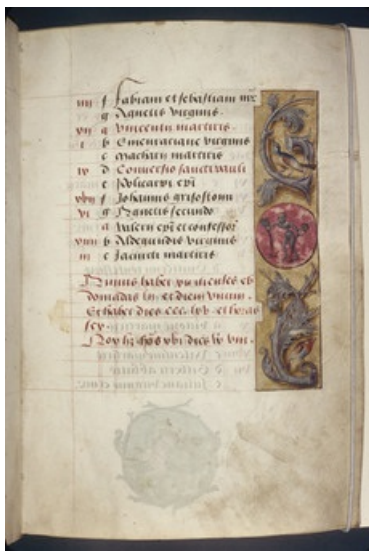 iiii f Fabiani et sebastiani mr̃
g Agnetis virginis.
xii g Vincentii martiris.
i b Emerentiane virginis
c macharii martiris
ix d Conuersio sancti pauli
e Policarpi ep̃i
xvii f Johannis grisostomi
vi g Agnetis secundo
a Valerii ep̃i et confessor
xiiii b Aldegundis virginis
iii c martiris
Annus habet xii menses eb
domadas lii et diem vnum.
Et habet dies ccc lxv et horas
sex.
Nox h̃z horas xvi dies vero viii.